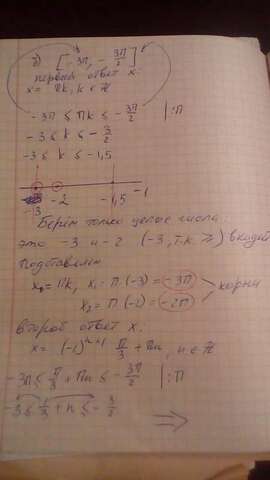 б) [-3π, -3π/2]
первый ответ x.
x = πk, k ∈ Z
-3π ≤ πk ≤ -3π/2 | :π
-3 ≤ k ≤ -3/2
-3 ≤ k ≤ -1,5
-3 -2 -1,5 -1
Берём только целые числа
это -3 и -2 (-3, т.к. ≥) входит
Подставляем
x₁ = πk, x₁ = π·(-3) = -3π
x₂ = π·(-2) = -2π
корни
второй ответ x.
x = (-1)ⁿ⁺¹ π/3 + πn, n ∈ Z
-3π ≤ π/3 + πn ≤ -3π/2 | :π
-3 ≤ 1/3 + n ≤ -3/2
⇒